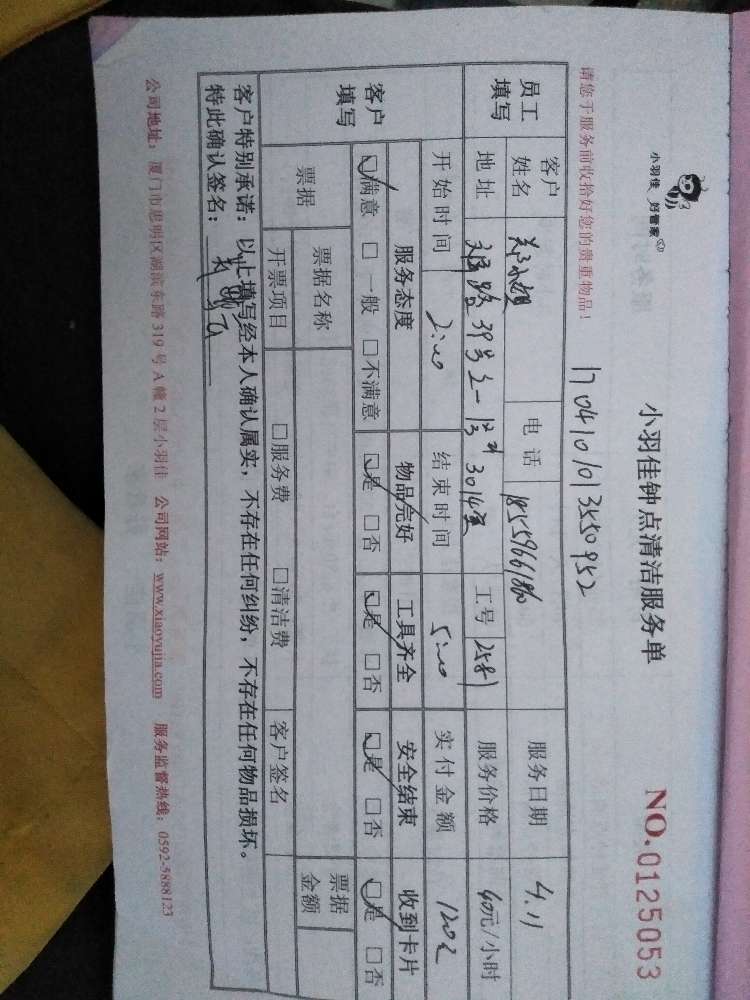 小羽佳 好管家
小羽佳钟点清洁服务单
NO.0125053
请您于服务前收拾好您的贵重物品！
1704101013550952
员工填写
客户姓名 郑小姐 电话 服务日期 4.11
地址 路39号之一 301室 工号 2581 服务价格 40元/小时
客户填写
开始时间 2:00 结束时间 5:00 实付金额 120元
服务态度 物品完好 工具齐全 安全结束 收到卡片
☑满意 □一般 □不满意 ☑是 □否 ☑是 □否 ☑是 □否 ☑是 □否
票据 票据名称 票据金额
开票项目 □服务费 □清洁费 客户签名
客户特别承诺：以上填写经本人确认属实，不存在任何纠纷，不存在任何物品损坏。
特此确认签名：
公司地址：厦门市思明区湖滨东路319号A幢2层小羽佳 公司网站：www.xiaoyujia.com 服务监督热线：0592-5888123